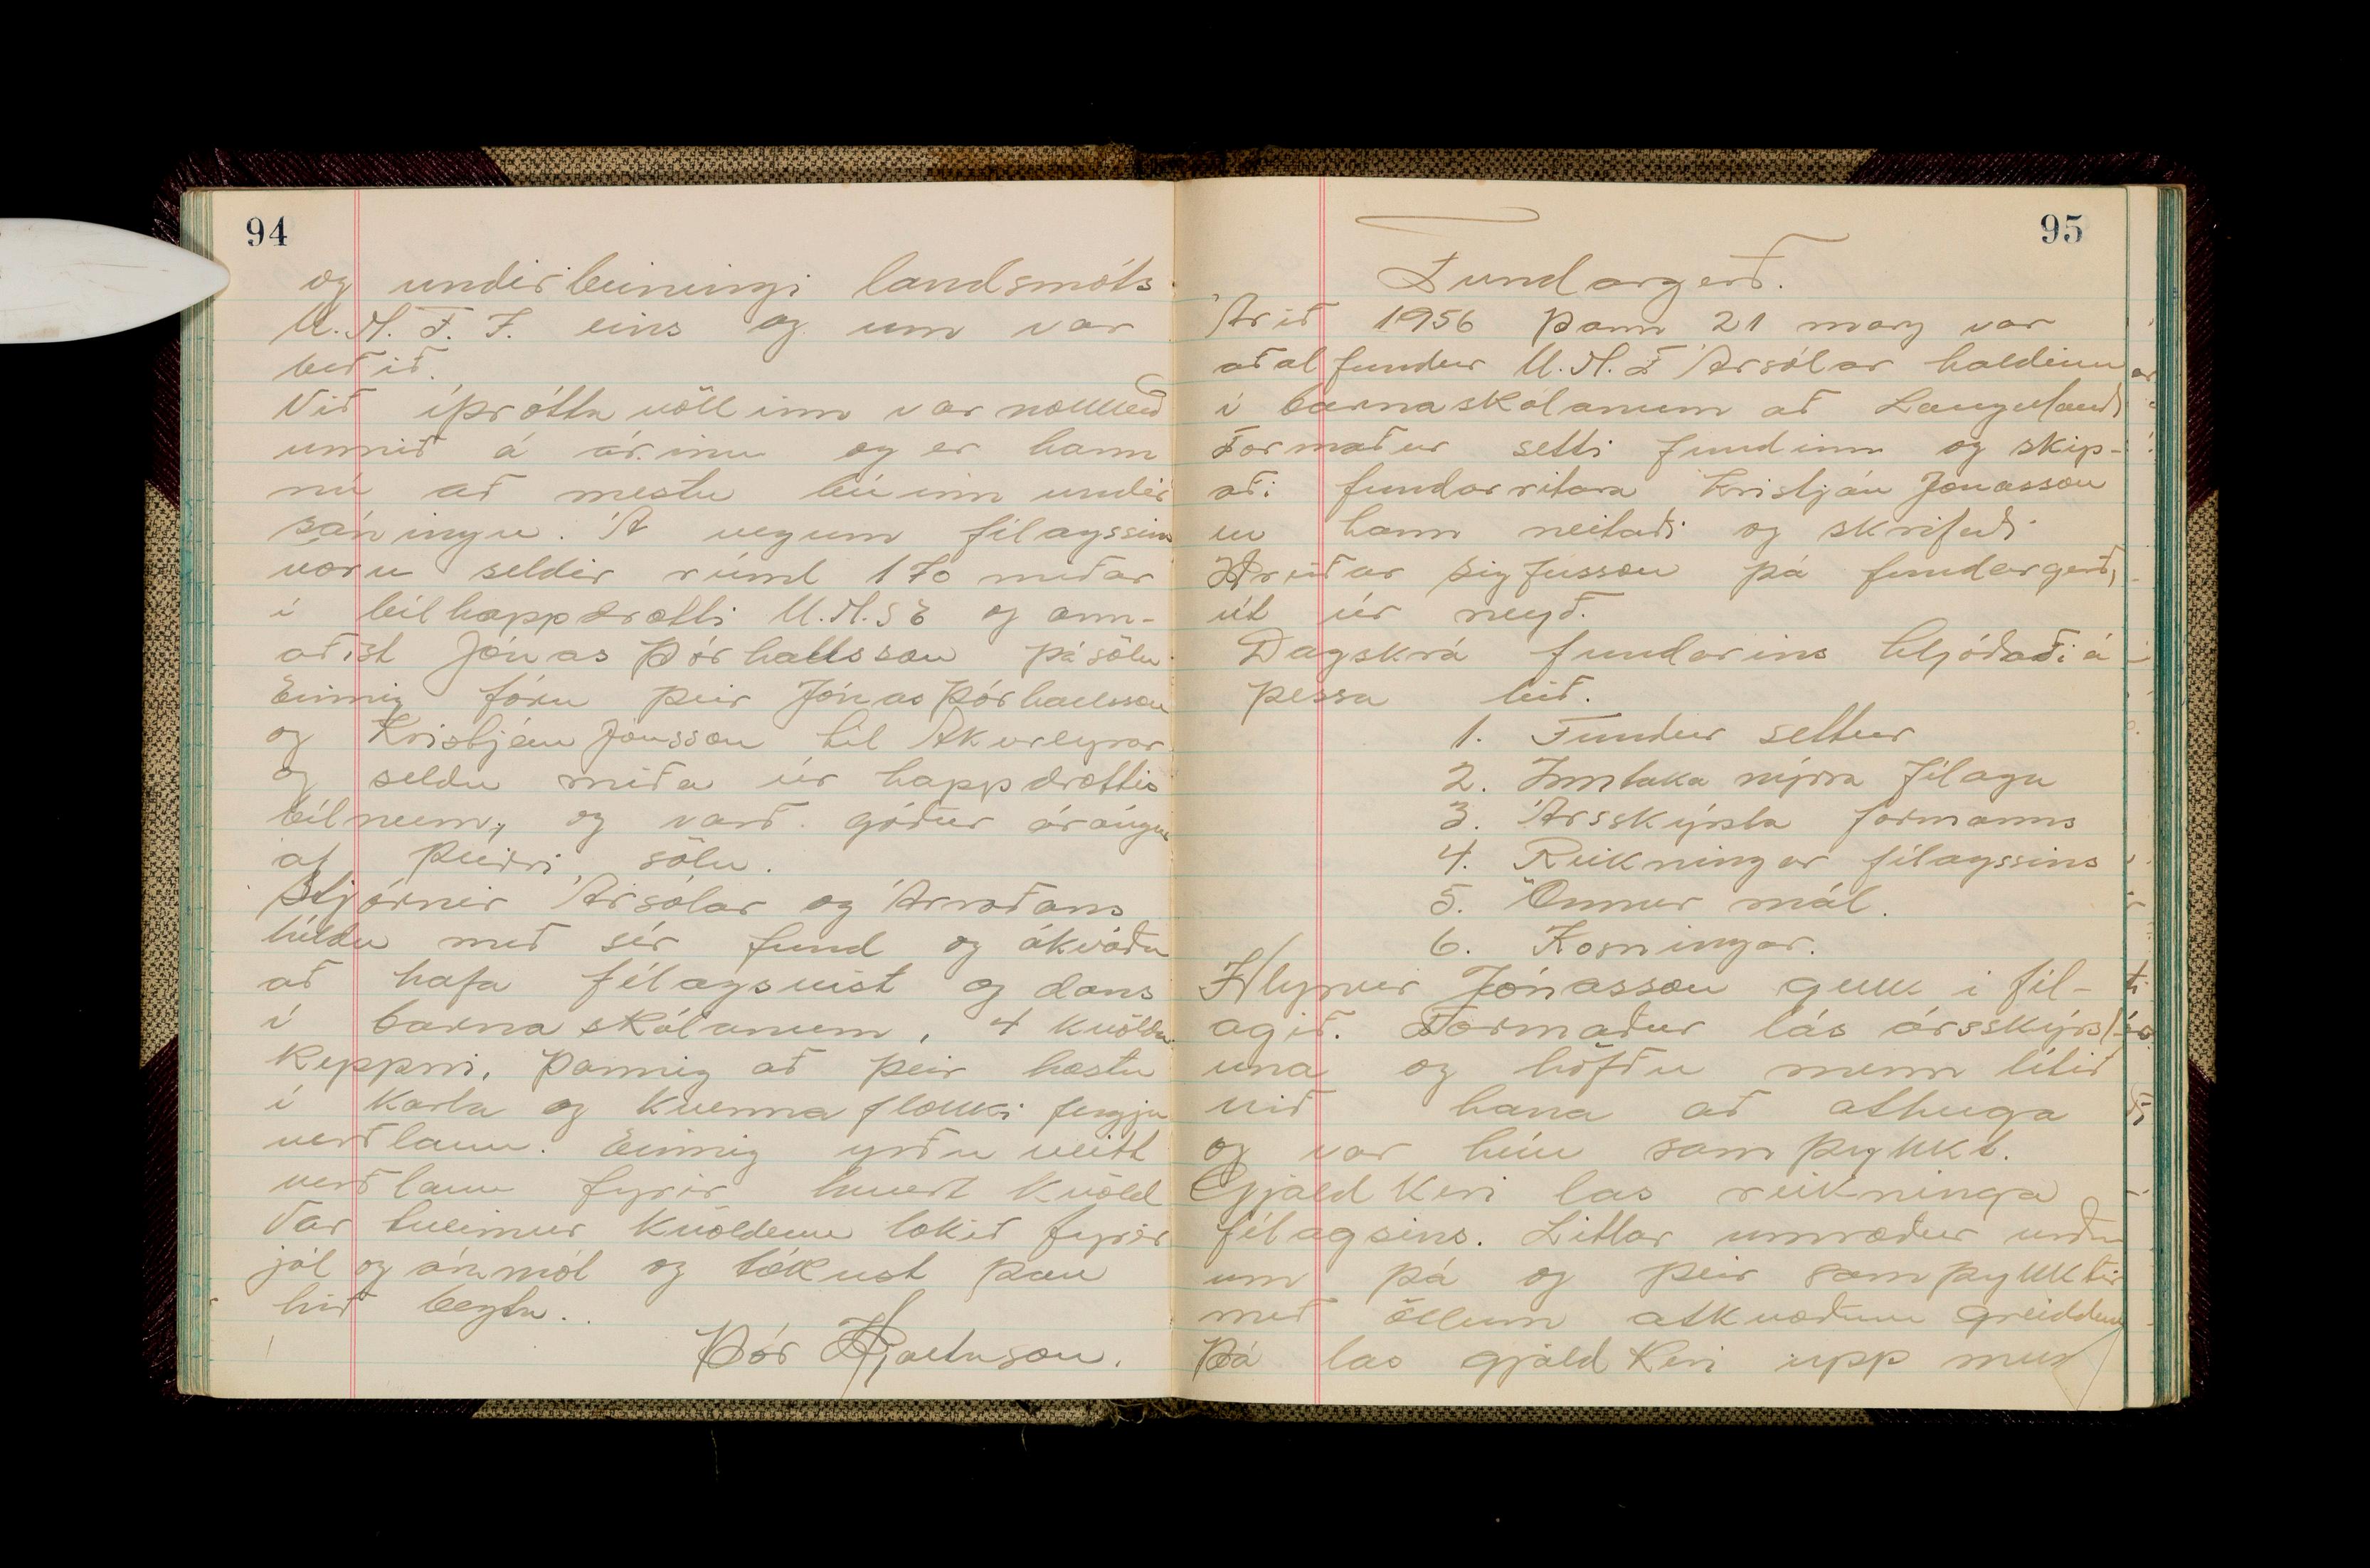 94
og undirbúningi landsmóts
U.M.F.Í. eins og um var
beðið.
Við íþróttavöllinn var nokkuð
unnið á árinu og er hann
nú að mestu búinn undir
sáningu. Á vegum félagssins
voru seldir rúml 170 miðar
í bílhappdrætti U.M.S.E og ann-
aðist Jónas Þórhallsson þá sölu.
Einnig fóru þeir Jónas Þórhallsson
og Kristján Jónsson til Akureyrar
og seldu miða úr happdrættis
bílnum, og varð góður árángur
af þeirri sölu.
Stjórnir Ársólar og Árroðans
héldu með sér fund og ákváðu
að hafa félagsvist og dans
í barnaskólanum, 4 kvölda
keppni, þannig að þeir hæstu
í karla og kvenna flokki fengju
verðlaun. Einnig yrðu veitt
verðlaun fyrir hvert kvöld
Var tveimur kvöldum lokið fyrir
jól og áramót og tókust þau
hið bezta.
Þór Hjaltason.
95
Fundargerð.
Árið 1956 þann 21 marz var
aðalfundur U.M.F Ársólar haldinn
í barnaskólanum að Laugalandi
Formaður setti fundinn og skip-
aði fundarritara Kristján Jónasson
en hann neitaði og skrifaði
Hreiðar Sigfússon þá fundargerð,
út úr neyð.
Dagskrá fundarins hljóðaði á
þessa leið.
1. Fundur settur
2. Inntaka nýrra félaga
3. Ársskýrsla formanns
4. Reikningar félagssins
5. Önnur mál.
6. Kosningar.
Hlynur Jónasson gekk í fél-
agið. Formaður lás ársskýrsl-
una og höfðu menn lítið
við hana að athuga
og var hún samþykkt.
Gjaldkeri las reikninga
félagsins. Litlar umræður urðu
um þá og þeir samþykktir
með öllum atkvæðum greiddum
Þá las gjaldkeri upp